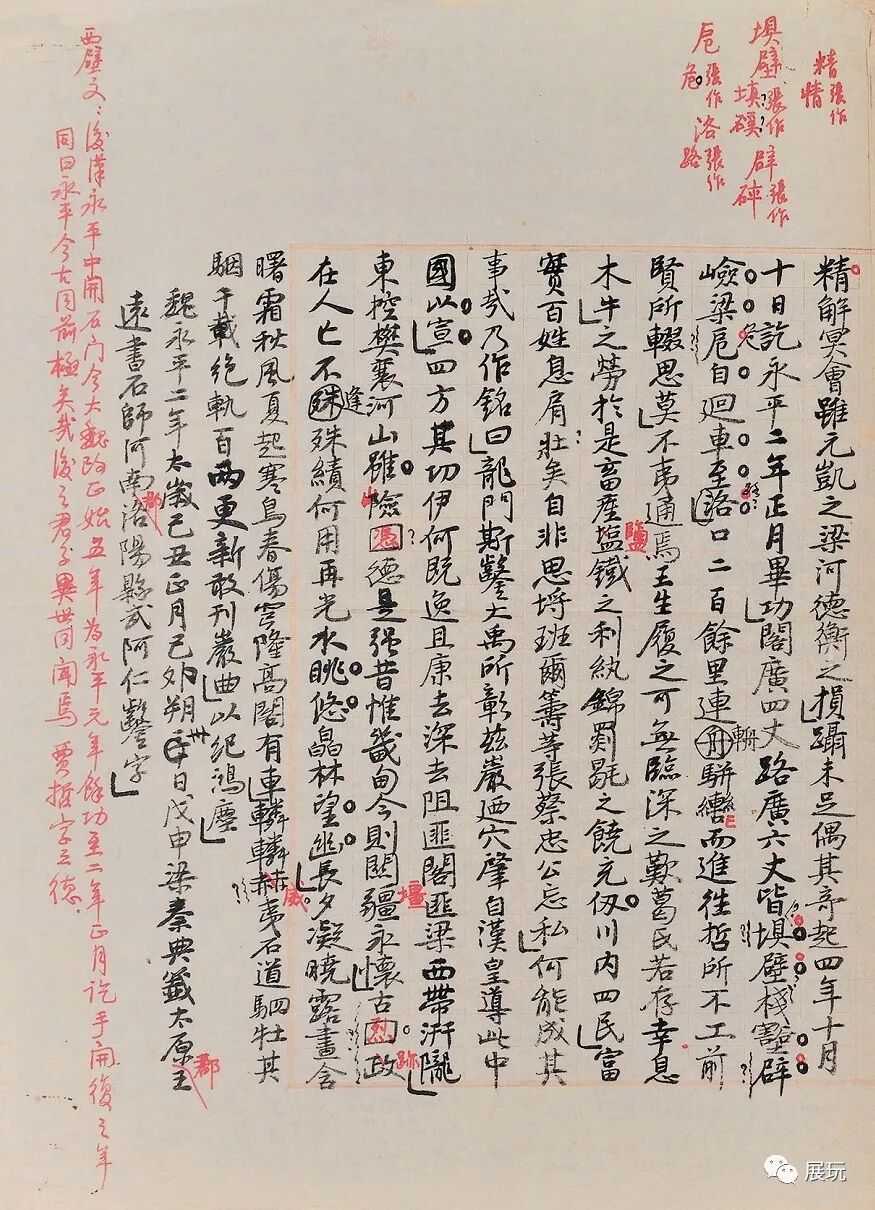 精張作
情
填壁張作
填磎
辟張作
碎
危張作
危
洛張作
路
精解冥會雖元凱之梁河德衡之損躡未足偶其奇起四年十月
十日訖永平二年正月畢功閣廣四丈路廣六丈皆塡壁棧壑辟
嶮梁危自迴車至路口二百餘里連舟輈駢轡而進往哲所不工前
賢所輟思莫不夷通焉王生履之可無臨深之歎葛民若存幸息
木牛之勞於是畜產塩鹽鐵之利紈錦罽毼之饒充仞川內四民富
實百姓息肩壯矣自非思埒班爾籌等張蔡忠公忘私何能成其
事哉乃作銘曰龍門斯鑿大禹所彰茲巖迺穴肇自漢皇導此中
國以宣四方其功伊何既逸且康去深去阻匪閣匪梁西帶汧隴
東控樊襄河山雖險憑德是强昔惟畿甸今則關疆壃永懷古烈跡政
在人亡不殊逢殊績何用再光水眺悠皛林望幽長夕凝曉露晝含
曙霜秋風夏起寒鳥春傷穹隆高閣有車轔轔赫威夷石道駟牡其
駰千載絶軌百兩更新敢刊巖曲以紀鴻塵
魏永平二年太歲己丑正月己卯朔卅日戊申梁秦典籤太原郡王
遠書石師河南郡洛陽縣武阿仁鑿字
西壁文:後漢永平中開石门今大魏改正始五年為永平元年餘功至二年正月訖手開復之年
同曰永平今古同前極矣哉後之君子異世同聞焉 賈哲字三德
展玩